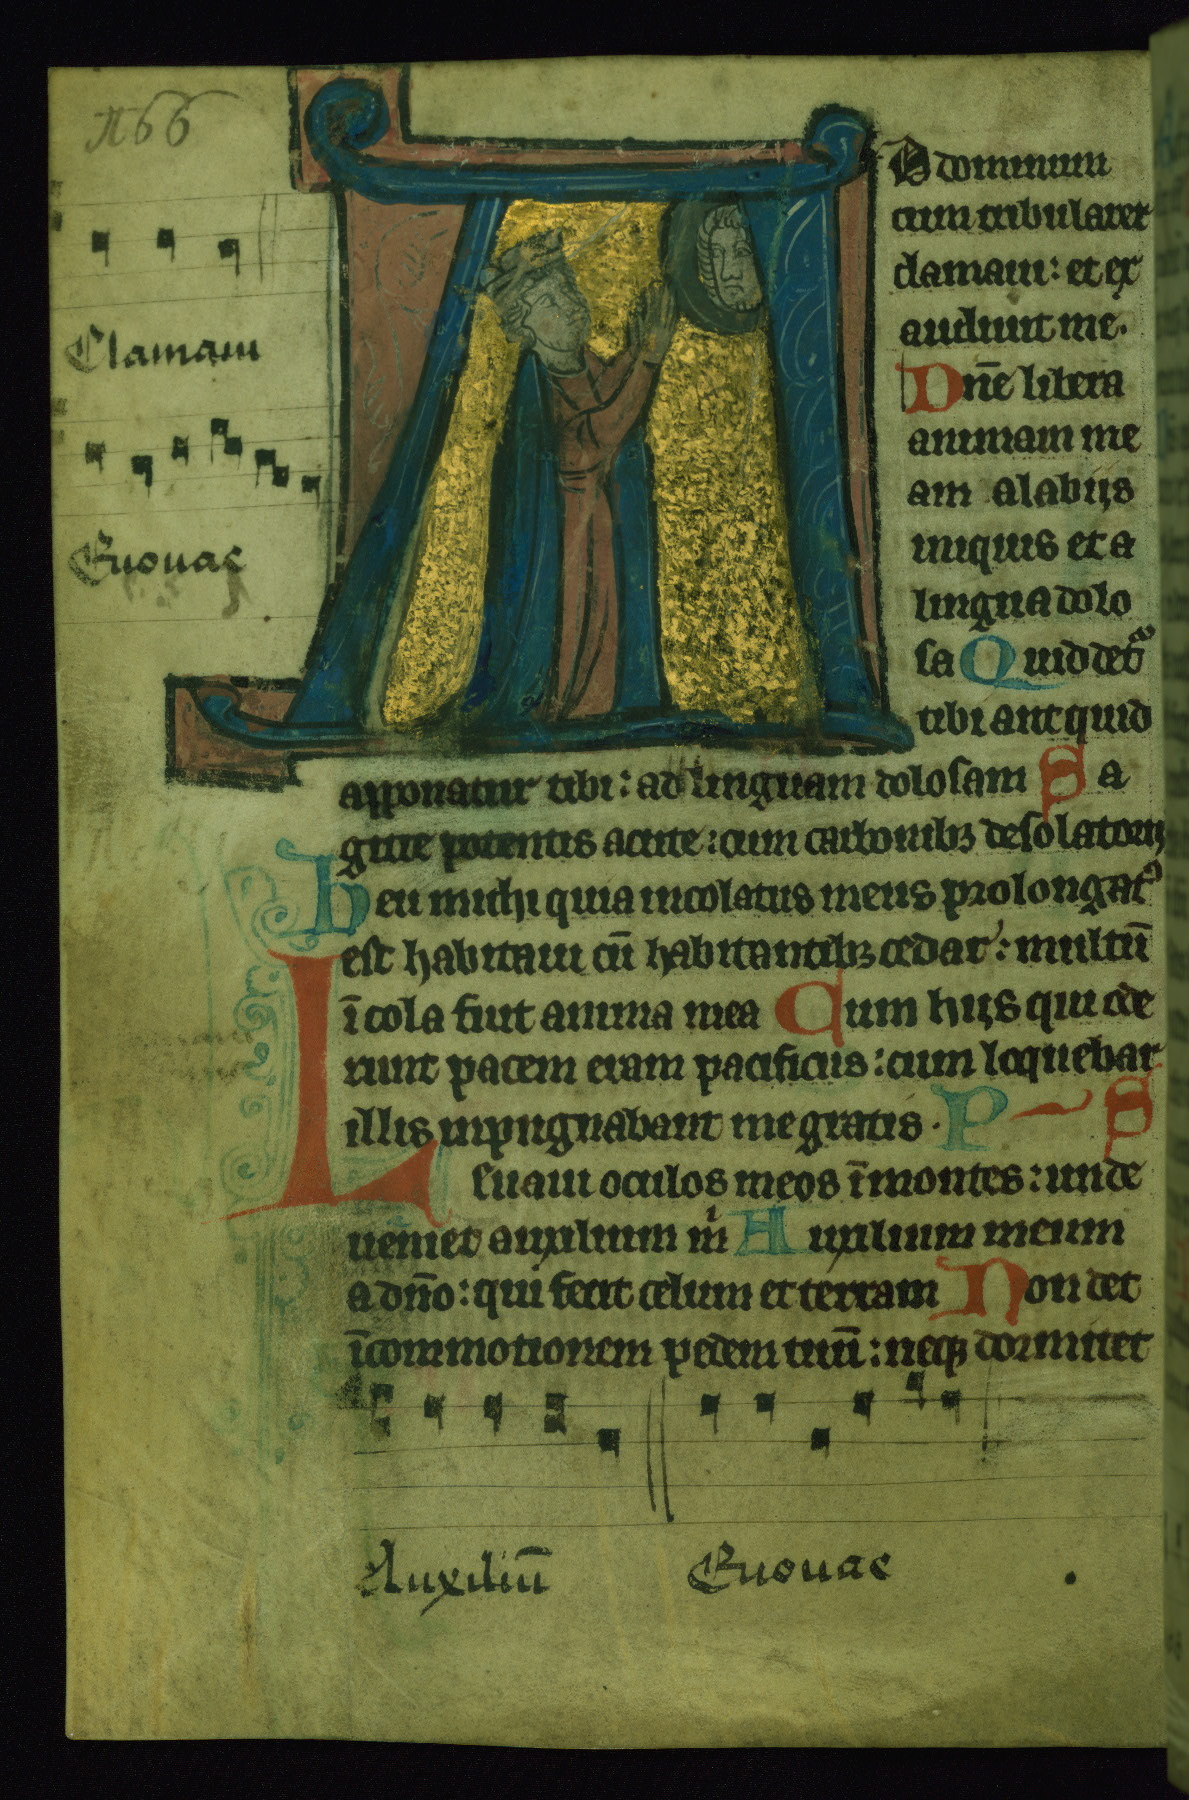 166
A
D dominum
cum tribularer
clamaui: et ex
audiuit me.
Dn̄e libera
animam me
am a labijs
iniquis et a
lingua dolo
sa Quid det᷒
tibi aut quid
apponatur tibi: ad linguam dolosam Sa
gitte potentis acute: cum carbonibꝫ desolatorijs
Heu michi quia incolatus meus prolongat᷒
est habitaui cū habitantibꝫ cedar: multū
īcola fuit anima mea Cum hijs qui ode
runt pacem eram pacificus: cum loquebar
illis inpugnabant me gratis. P S
Leuaui oculos meos ī montes: unde
ueniet auxilium m̊i Auxilium meum
a dn̄o: qui fecit celum et terram Non det
īcommotionem pedem tuū: neqꝫ dormitet
Clamaui
Euouae
Auxiliū Euouae